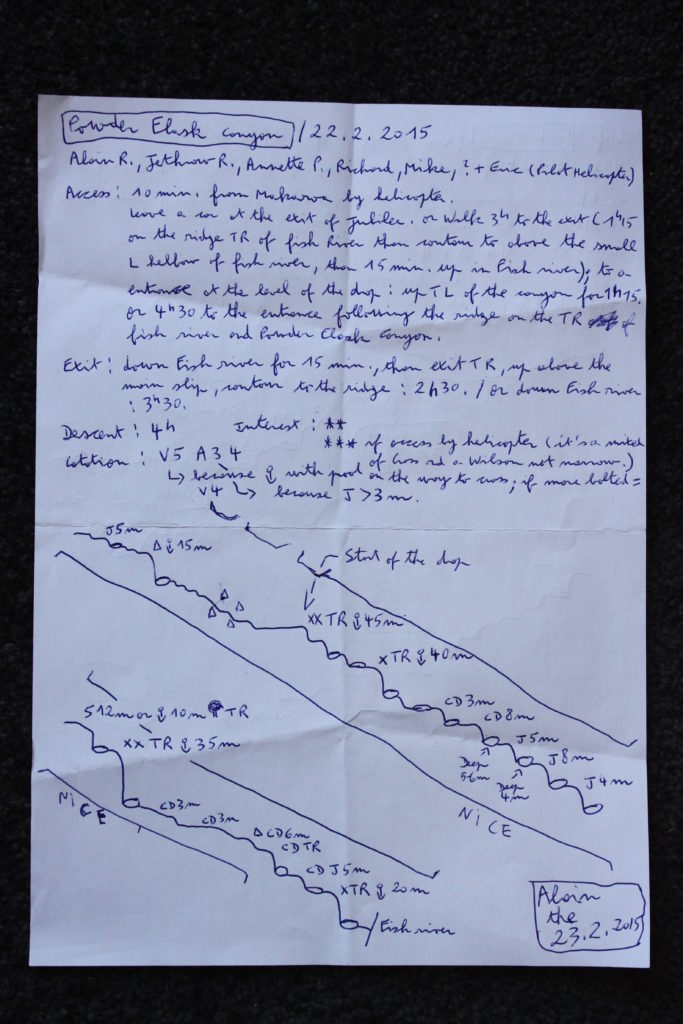 Powder Flask canyon / 22.2.2015
Alain R., Jethrow R., Annette P., Richard, Mike, ? + Eric (Pilot Helicopter)
Access: 10 min. from Makarora by helicopter.
leave a car at the exit of Jubilee. or Walk 3h to the exit (1h15
on the ridge TR of fish River than contour to above the small
L of fish river, than 15 min. up in Fish river); to a
entrance at the level of the drop: up TL of the canyon for 1h15,
or 4h30 to the entrance following the ridge on the TR of
fish river and Powder Flask Canyon.
Exit: down Fish river for 15 min., than exit TR, up above the
main slip, contour to the ridge: 2h30. / or down Fish river
: 3h30.
Descent: 4h Interest: **
*** if access by helicopter (it's a mixed
Cotation: V5 A3 4 of Cross and a Wilson not narrow.)
↳ because with pool on the way to cross; if more bolted =
V4 ↳ because J > 3m.
J5m
Δ 15m
Start of the drop
Δ Δ
Δ Δ
XX TR 45m
X TR 40m
CD3m
CD8m
J5m
Deep
5-6m
J8m
Deep
4m
J4m
NICE
S12m or 10m TR
XX TR 35m
NICE
CD3m
CD3m
Δ CD6m
CD TR
CD J5m
XTR 20m
Fish river
Alain
the
23.2.2015